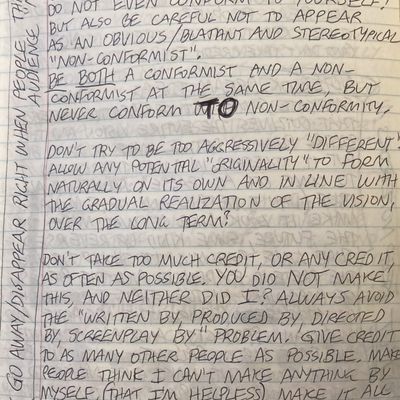 DO NOT EVEN CONFORM TO YOURSELF!
BUT ALSO BE CAREFUL NOT TO APPEAR
AS AN OBVIOUS/BLATANT AND STEREOTYPICAL
"NON-CONFORMIST".
BE BOTH A CONFORMIST AND A NON-
CONFORMIST AT THE SAME TIME, BUT
NEVER CONFORM TO NON-CONFORMITY.
DON'T TRY TO BE TOO AGGRESSIVELY "DIFFERENT".
ALLOW ANY POTENTIAL "ORIGINALITY" TO FORM
NATURALLY ON ITS OWN AND IN LINE WITH
THE GRADUAL REALIZATION OF THE VISION,
OVER THE LONG TERM?
DON'T TAKE TOO MUCH CREDIT, OR ANY CREDIT,
AS OFTEN AS POSSIBLE. YOU DID NOT MAKE
THIS, AND NEITHER DID I? ALWAYS AVOID
THE "WRITTEN BY, PRODUCED BY, DIRECTED
BY, SCREENPLAY BY" PROBLEM. GIVE CREDIT
TO AS MANY OTHER PEOPLE AS POSSIBLE. MAKE
PEOPLE THINK I CAN'T MAKE ANYTHING BY
MYSELF, (THAT I'M HELPLESS) MAKE IT ALL
GO AWAY/DISAPPEAR RIGHT WHEN PEOPLE
AUDIENCE